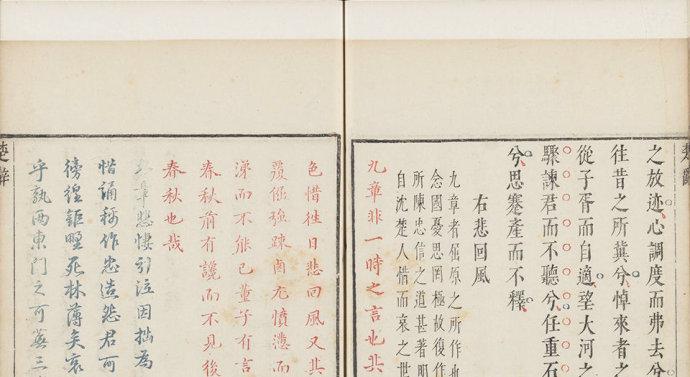 楚辭
之放迹心調度而弗去兮
往昔之所冀兮悼來者之
從子胥而自適望大河之
驟諫君而不聽兮任重石
兮思蹇產而不釋
右悲回風
九章者屈原之所作也
念國憂思罔極故復作
所陳忠信之道甚著明
自沈楚人惜而哀之世
九章非一時之言也其
色惜往日悲回風又其
涕而不能已董子有言
春秋前有讒而不見後
春秋也哉
章悲悽引泣因拙為
惜誦稱作忠造怨君可
徬徨鉅野死林薄矣哀
乎孰兩東門之可蕪三
楚辭